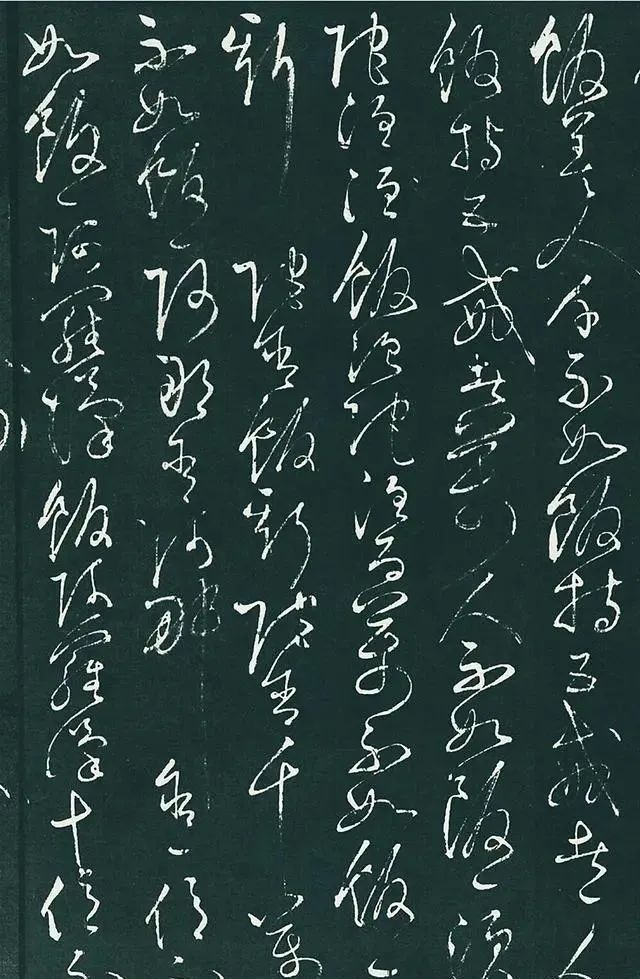 飯善人千不如飯持五戒者人
飯持五戒者萬人不如飯一須
陀洹洹飯須陀洹百萬不如飯一
斯陀含飯斯陀含千萬
不如飯一阿那含阿那含一億不
如飯一阿羅漢飯阿羅漢十億不